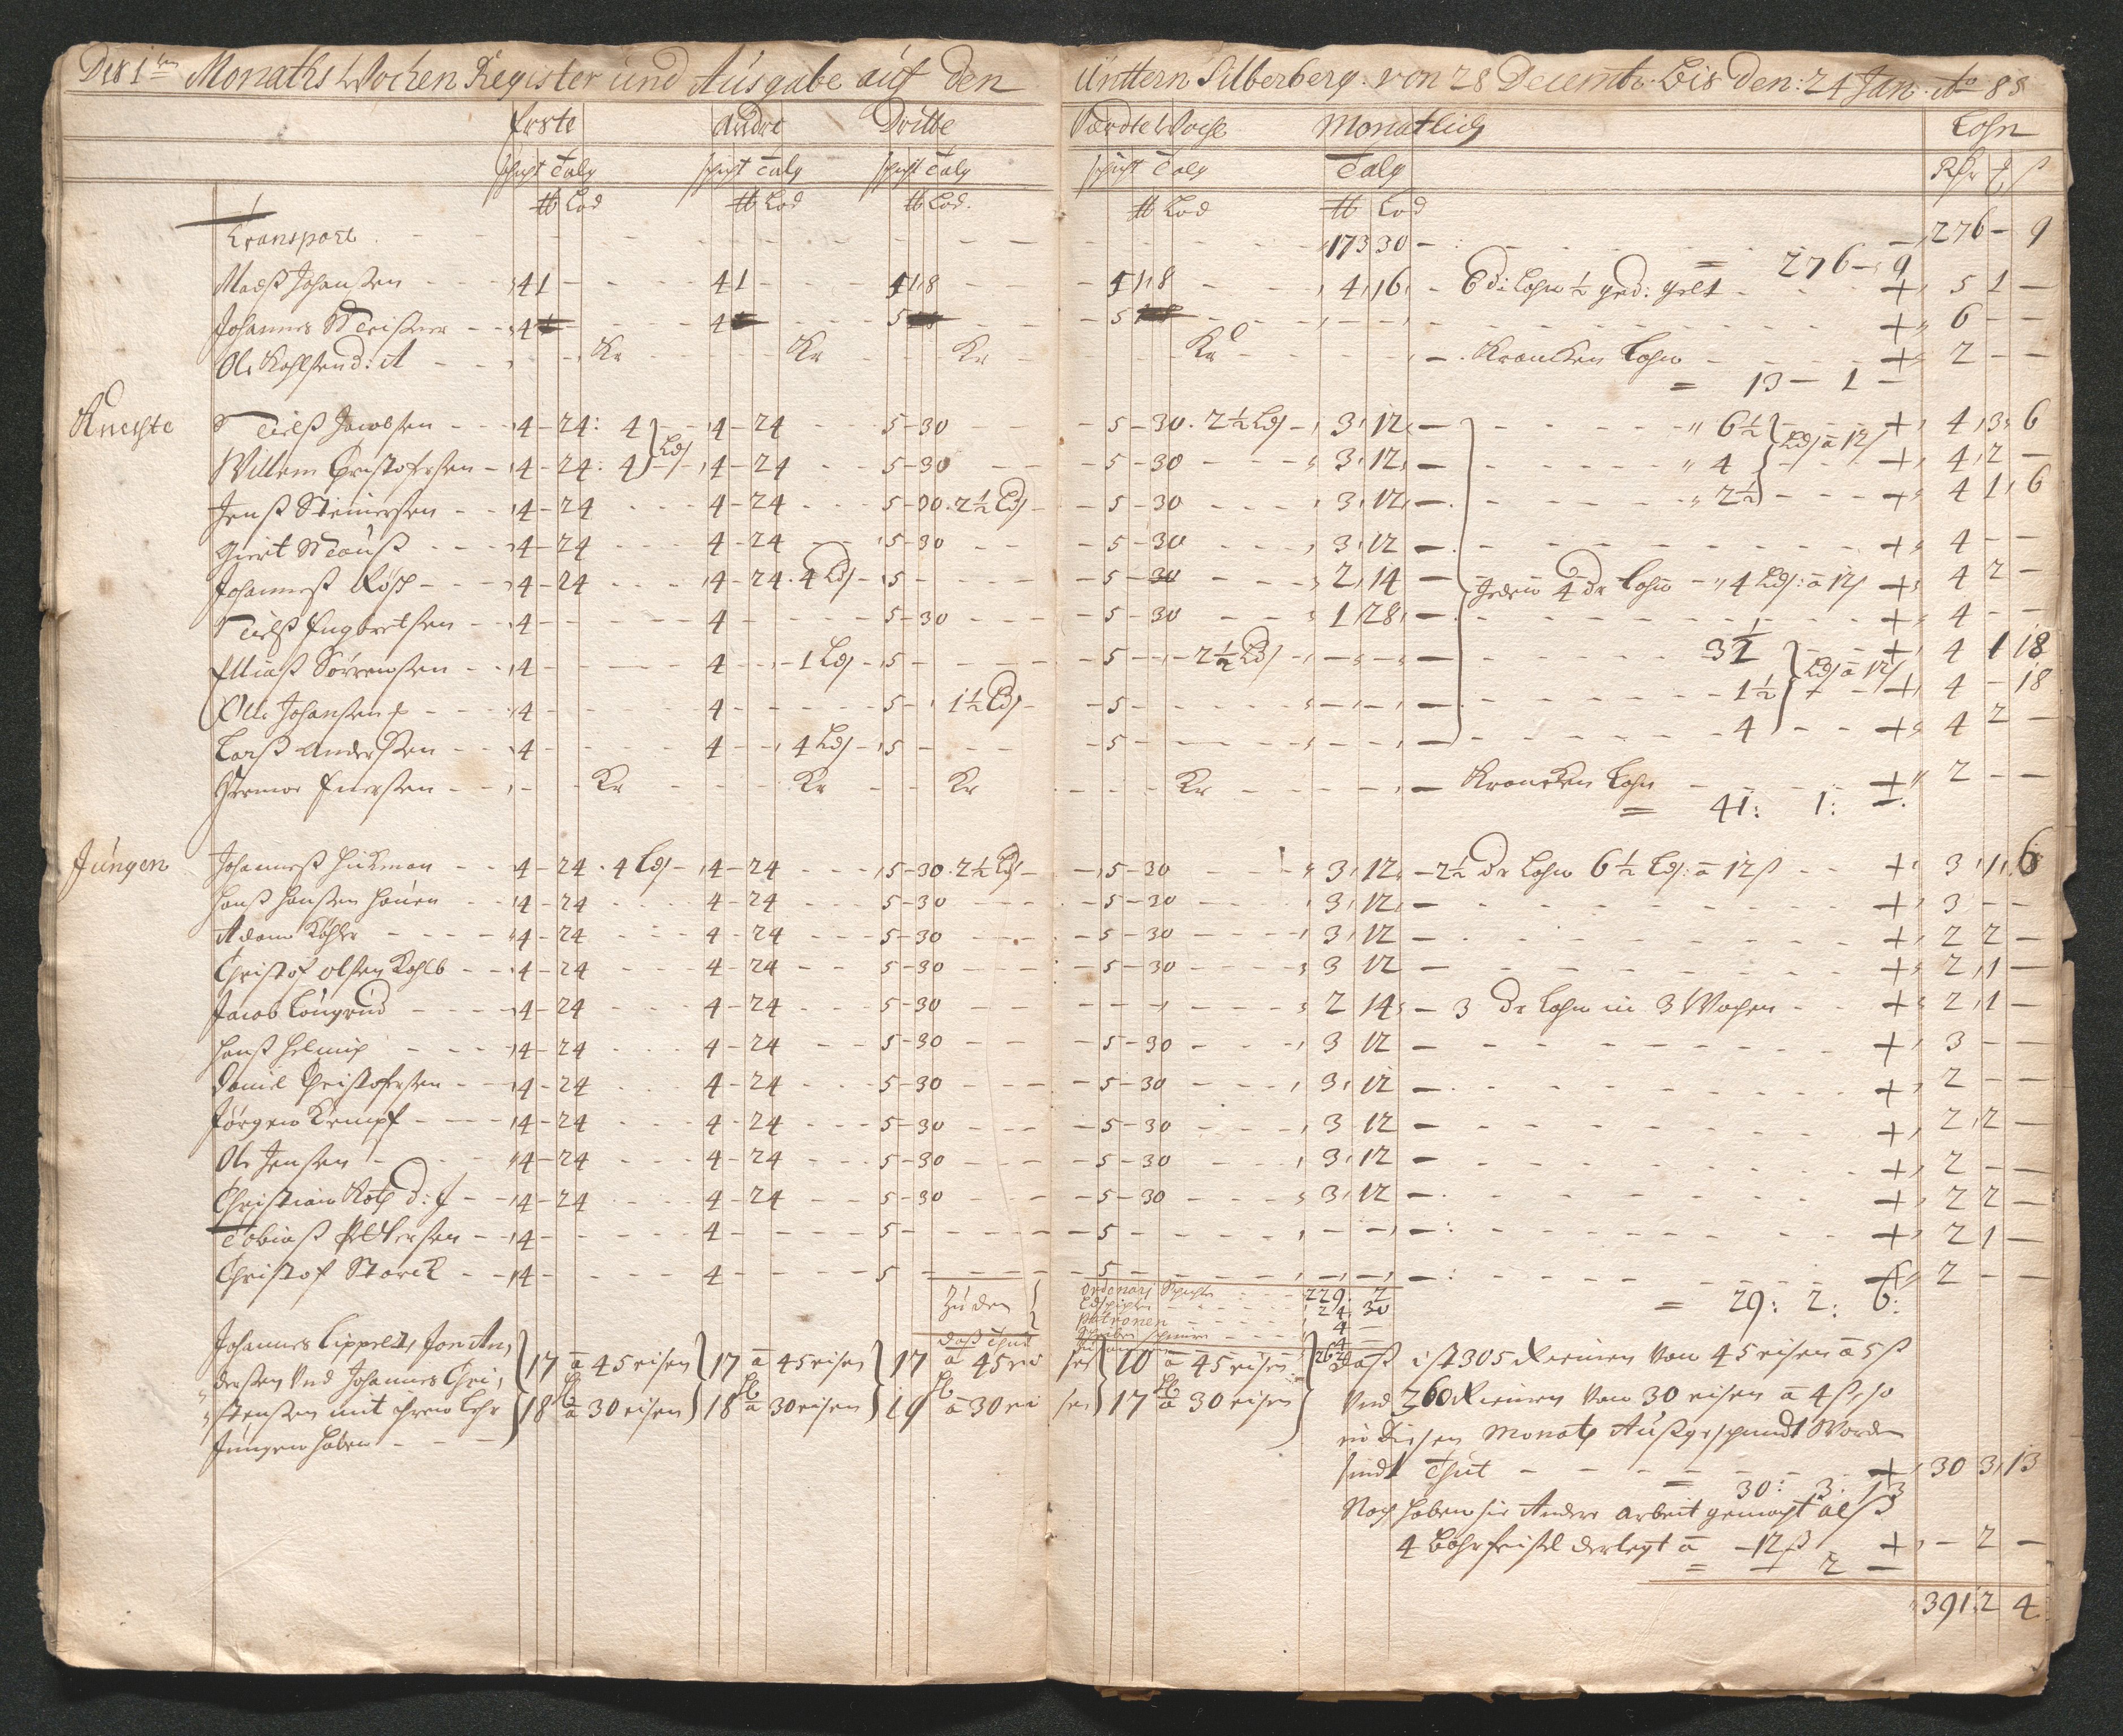 Des 1ten Monaths Wochen Register und Ausgabe auf den Unttern Silberberg von 28 Decembr. bis den: 24 Jan: Ao 85
Erste Andre Dritte Vierdte Woche Monatlich Lohn
schicht Talg schicht Talg schicht Talg schicht Talg Talg Rthr ß
℔ Lod ℔ Lod ℔ Lod. ℔ Lod ℔ Lod
Transport 173 30 276 - 9
= 276 - 9
Madß Johanßen 4 1 4 1 4 1,8 4 1,8 4, 16, 6 dr: Lohn ½ ged: gelt + 5 1 -
Johannes Meißner 4 4 5 5 + 6 - -
Ole Kohlßen d: A Kr Kr Kr Kr Krancken Lohn + 2 - -
= 13 - 1 -
Knechte Nielß Jacobsen 4 - 24: 4 4 - 24 5 - 30 5 - 30. 2½ Lds 3, 12, 6½ + 4, 3, 6
Willem Cristofersen 4 - 24: 4 Lds 4 - 24 5 - 30 5 - 30 3, 12, 4 Lds a 12 ß + 4, 2 -
Jenß Steinersen 4 - 24 4 - 24 5 - 30. 2½ Lds 5 - 30 3, 12, 2½ + 4 1, 6
Giert Mauß 4 - 24 4 - 24 5 - 30 5 - 30 3, 12 + 4 - -
Johanneß Röß 4 - 24 4 - 24. 4 Lds 5 - 5 - 30 2, 14 Jeden 4 dr Lohn - 4 Lds: a 12 ß + 4 2 -
Nielß Engbretsen 4 4 5 - 30 5 - 30 1, 28, + 4 - -
Elliaß Sörrensen 4 4 1 Lds 5 5 2½ Lds 3½ + 4 1 18
Olle Johanßen 4 4 5 1½ Lds 5 1½ Lds a 12 ß + 4 - 18
Larß Anderßen 4 4 4 Lds 5 5 4 + 4 2 -
Hermoe Enersen Kr Kr Kr Kr Krancken Lohn + 2 - -
= 41: 1: -
Jungen Johanneß Hickman 4 - 24. 4 Lds 4 - 24 5 - 30. 2½ Lds 5 - 30 3, 12, 2½ dr Lohn 6½ Lds: a 12 ß + 3, 1, 6
Hanß Hanßen Hauen 4 - 24 4 - 24 5 - 30 5 - 30 3, 12, + 3 - -
Adam Köhler 4 - 24 4 - 24 5 - 30 5 - 30 3, 12 + 2 2 -
Christof Olsen Kohlb 4 - 24 4 - 24 5 - 30 5 - 30 3 12 + 2, 1 -
Jacob Longrud 4 - 24 4 - 24 5 - 30 2 14, 3 dr Lohn in 3 Wochen + 2, 1 -
Hanß Helmig 4 - 24 4 - 24 5 - 30 5 - 30 3 12 + 3 - -
Daniel Christofersen 4 - 24 4 - 24 5 - 30 5 - 30 3, 12 + 2 - -
Jörgen Kempf 4 - 24 4 - 24 5 - 30 5 - 30 3 12 + 2, 2 -
Ole Jensen 4 - 24 4 - 24 5 - 30 5 - 30 3, 12 + 2 - -
Christian Roth d: J 4 - 24 4 - 24 5 - 30 5 - 30 3, 12 + 2 2 -
Tobiaß Pettersen 4 4 5 5 + 2 1 -
Christof Starck 4 4 5 5 + 2 - -
= 29: 2: 6:
Zu den Ordonari Schicht 229. 2
24 30
Patronen 4 -
daß thut
Johannes Lippelt, Jon An, 17 a 45 eisen 17 a 45 eisen 17 a 45 ei sen 10 a 45 eisen daß ist 305 Riemen Von 45 eisen a 5 ß
derßen Und Johannes Chri, Und 260 Riemen Von 30 eisen a 4 ß, so
stenßen mit ihren Lehr 18 a 30 eisen 18 a 30 eisen 19 a 30 ei sen 17 a 30 eisen
Jungen haben in diesen Monath Außgeschmidt Worden
sindt Thut + 30 3, 13
= 30: 3: 13
Noch haben sie Andere arbeit gemacht alß
4 Bohrfeisel derlegt a - 12 ß + - 2 -
= - 2 -
391, 2 4